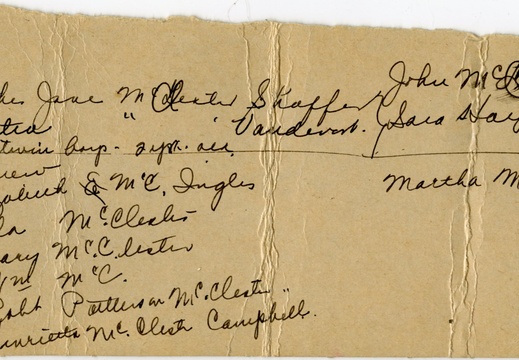 Jane McClester Shaffer John McC
" Vandevort. Sara Hay
twin boys - 2 yr. old.
E McC. Ingles Martha M
McClester
ary McClester
Wm McC.
Robt Patterson McClester "
enrietta McClester Campbell.